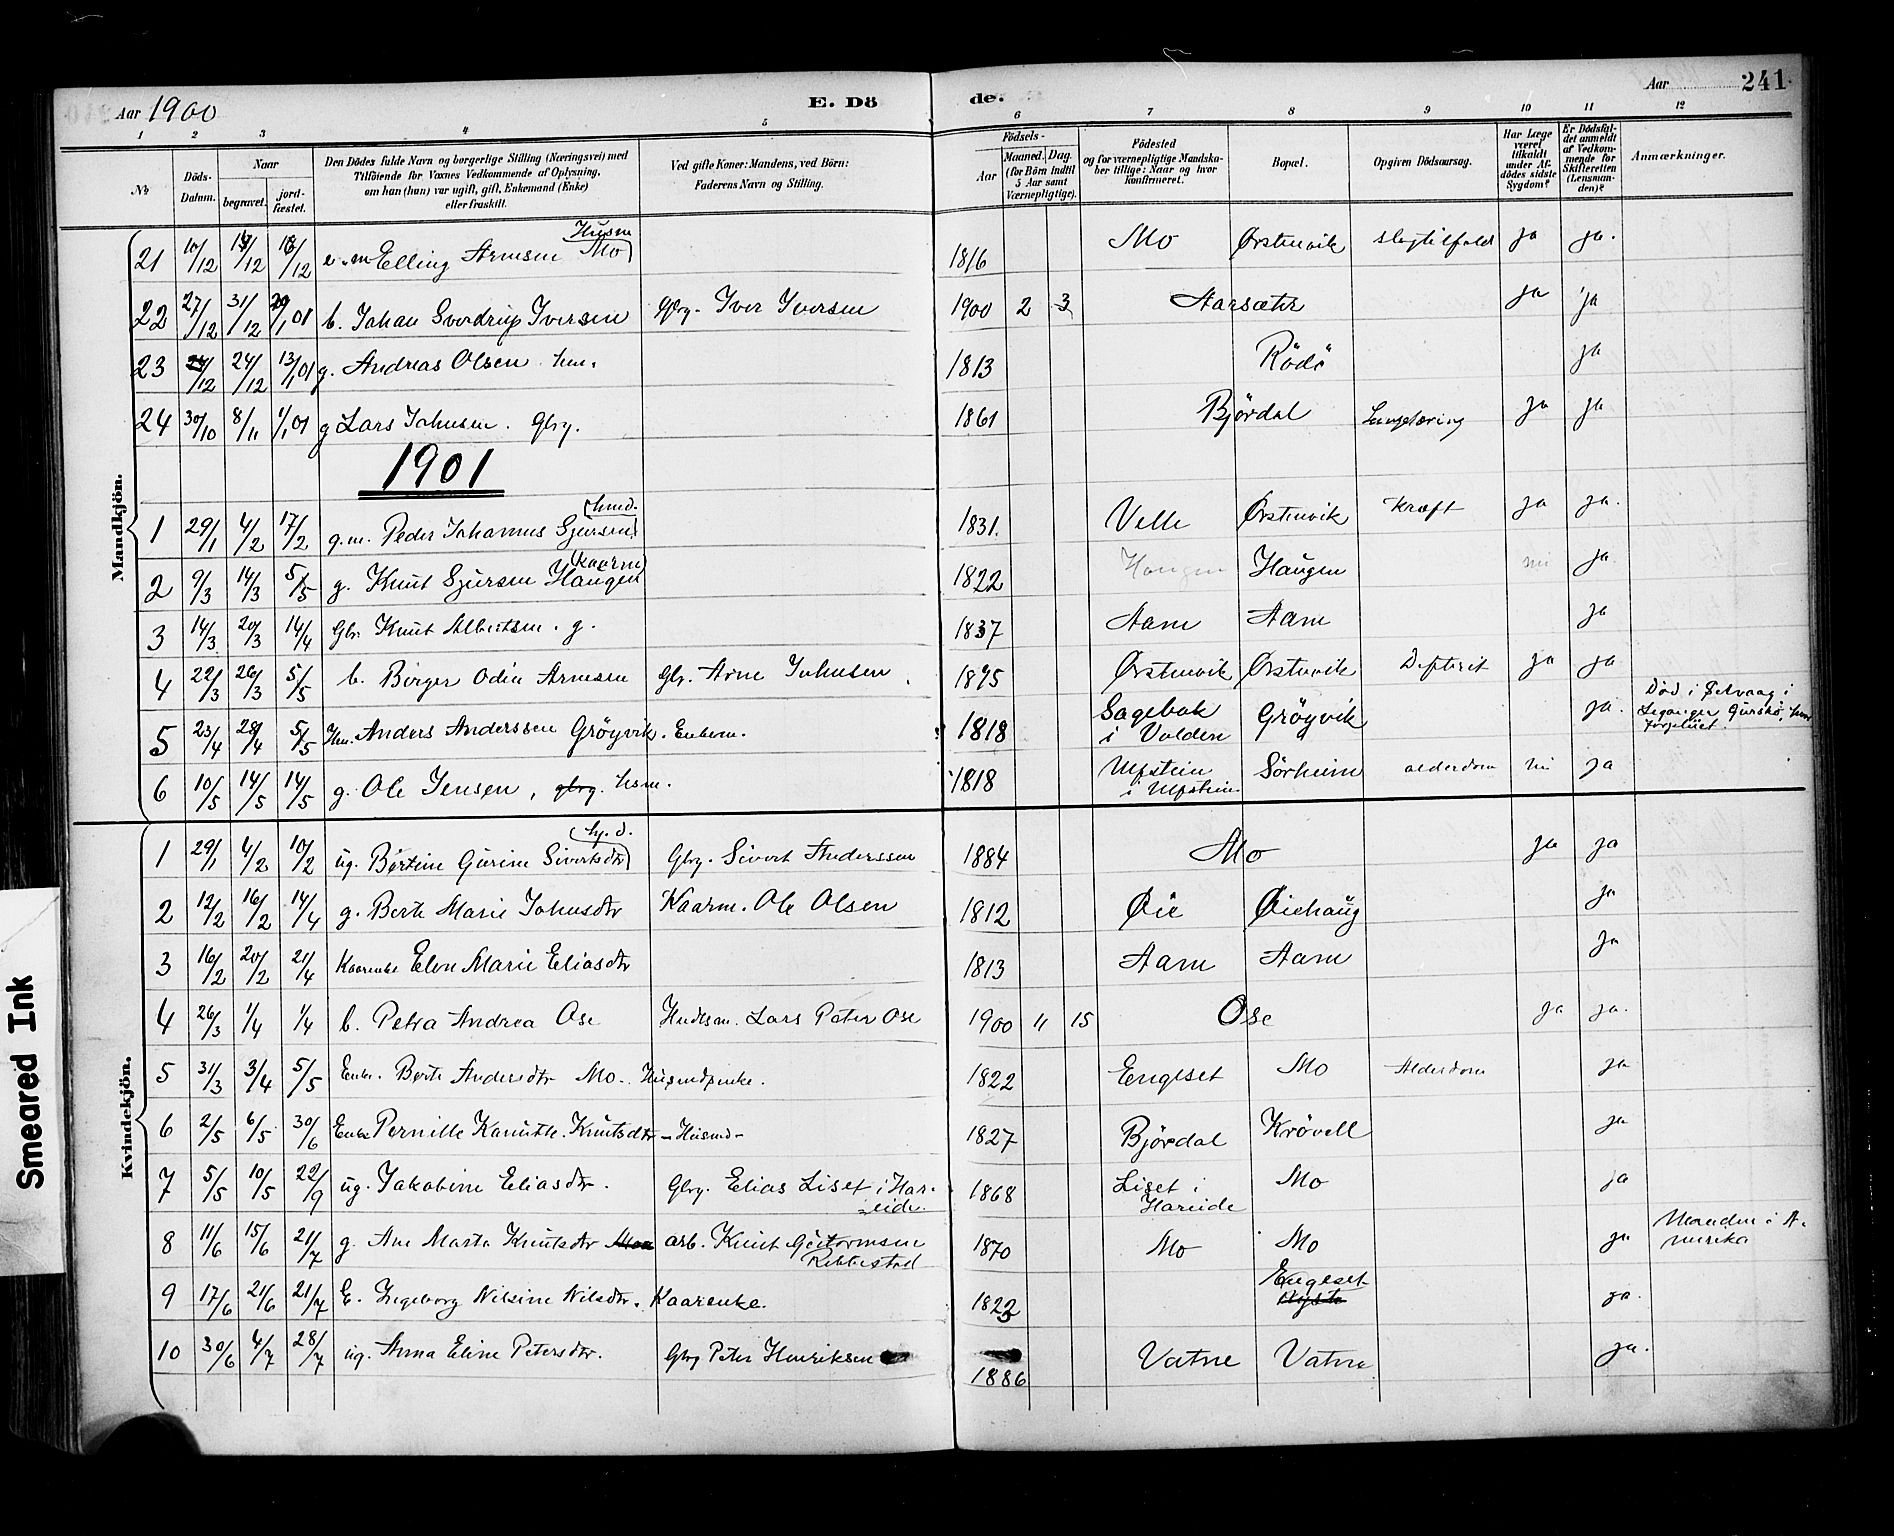 Aar 1900
E. Dö de.
Aar 241.
1 2 3 4 5 6 7 8 9 10 11 12
No
Döds-Datum.
Naar begravet. jordfæstet.
Den Dödes fulde Navn og borgerlige Stilling (Næringsvei) med Tilföiende for Voxnes Vedkommende af Oplysning, om han (hun) var ugift, gift, Enkemand (Enke) eller fraskilt.
Ved gifte Koner: Mandens, ved Börn: Faderens Navn og Stilling.
Födsels-
Aar Maaned. Dag. (for Börn indtil 5 Aar samt Værnepligtige).
Födested og for værnepligtige Mandskaber tillige: Naar og hvor konfirmeret.
Bopæl.
Opgiven Dödsaarsag.
Har Læge været tilkaldt under Afdödes sidste Sygdom?
Er Dödsfaldet anmeldt af Vedkommende for Skifteretten (Lensmanden)?
Anmærkninger.
Mandkjön.
21 10/12 /12 18/12 e.m Elling Arnesen Mo Husm 1816 Mo Ørstenvik slagtilfæld ja ja.
22 27/12 31/12 20/1 01 b. Johan Sverdrup Iversen Gbrg. Iver Iversen 1900 2 3 Aarsæter ja ja
23 /12 24/12 13/1 01 g. Andreas Olsen hm. 1813 Rödö ja
24 30/10 8/11 1/1 01 g Lars Johnsen. Gbrg. 1861 Björdal Lungetæring ja ja
1901
1 29/1 4/2 17/2 g.m. Peder Johannes Sjursen hmd. 1831. Velle Ørstenvik Kræft ja ja.
2 9/3 14/3 5/5 g. Knut Sjursen Haugen Kaarm 1822 Haugen Haugen nei ja.
3 14/3 20/3 14/4 Gbr. Knut Albertsen. g. 1837 Aam Aam ja
4 22/3 26/3 5/5 b. Birger Odin Arnesen Gbr. Arne Johnsen 1895 Ørstenvik Ørstenvik Difterit ja ja
5 23/4 28/4 5/5 Hm. Anders Anderssen Gröyvik. Enkem. 1818 Sagebak i Volden Gröyvik ja. Död i Ørvaag i Leganger Gurskö, hvor forpleiet.
6 10/5 14/5 14/5 g. Ole Jensen, gbrg. hsm. 1818 Ulfstein i Ulfstein Sörheim alderdom nei ja
Kvindekjön.
1 29/1 4/2 10/2 ug. Bertine Gurine Sivertsdtr hj. d. Gbrg. Sivert Anderssen 1884 Mo ja ja
2 12/2 16/2 14/4 g. Berte Marie Johnsdtr Kaarm. Ole Olsen 1812 Øie Øiehaug ja
3 16/2 20/2 21/4 Kaarenke Elen Marie Eliasdtr 1813 Aam Aam ja
4 26/3 1/4 1/4 b. Petra Andrea Ose Hndlsm. Lars Peter Ose 1900 11 15 Ose ja ja.
5 31/3 3/4 5/5 Enke. Berte Andersdtr Mo. Husmdsenke. 1822 Engeset Mo Alderdom ja
6 2/5 6/5 30/6 Enke Pernille Kanuthe. Knutsdtr – Husmd – 1827 Björdal Krövell ja
7 5/5 10/5 22/9 ug. Jakobine Eliasdtr. Gbrg. Elias Liset i Hareide. 1868 Liset i Hareide Mo ja
8 11/6 15/6 21/7 g. Ane Marta Knutsdtr arb. Knut Guttormsen Ribbestad 1870 Mo Mo ja Manden i Amerika
9 17/6 21/6 21/7 E. Ingeborg Nilsine Nilsdtr. Kaarenke. 1823 Engeset ja.
10 30/6 4/7 28/7 ug. Anna Eline Petersdtr. Gbrg Peter Henriksen 1886 Vatne Vatne ja.
Smeared Ink